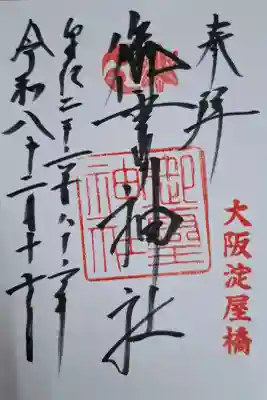 奉拝
大阪淀屋橋
御霊神社
御霊神社
皇紀二千六百八十六年
令和八年二月十